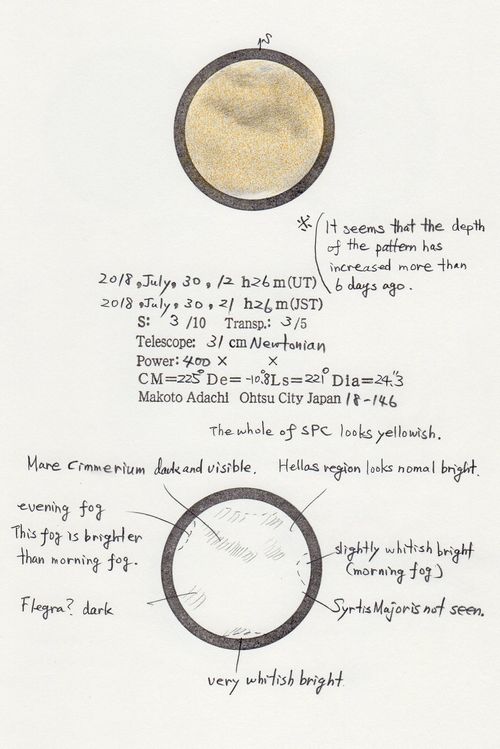 PS
※ It seems that the depth
of the pattern has
increased more than
6 days ago.
2018, July, 30, 12 h26m(UT)
2018, July, 30, 21 h26m(JST)
S: 3 /10 Transp.: 3/5
Telescope: 31 cm Newtonian
Power: 400 × ×
CM=225° De= -10.8° Ls=221° Dia=24."3
Makoto Adachi Ohtsu City Japan 18-146
The whole of SPC looks yellowish.
Mare Cimmerium dark and visible. Hellas region looks nomal bright.
evening fog
This fog is brighter
than morning fog.
slightly whitish bright
(morning fog)
Flegra? dark
Syrtis Major is not seen.
very whitish bright